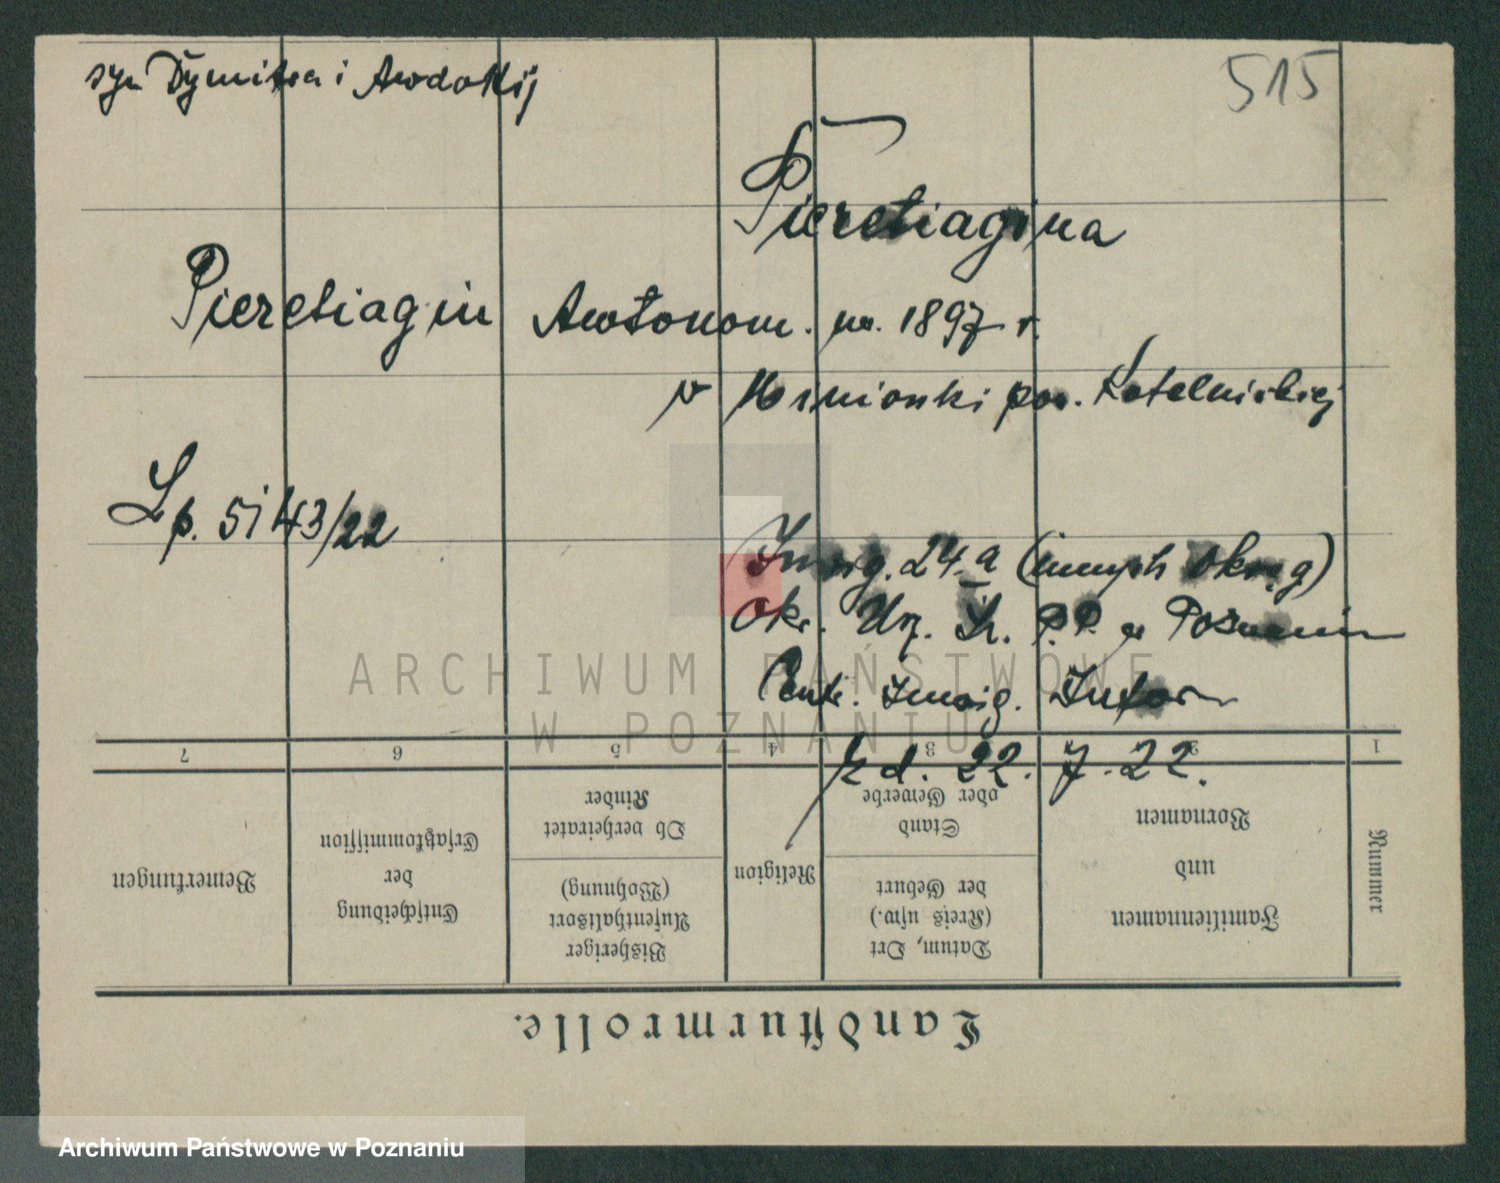 syn Dymitra i Awdokij
515
Pieretiagina
Pieretiagin Awtonom. ur. 1897 r.
w pow. Kotelnickiej
Lp. 5143/22
Inwig. 24.a (innych okręg)
Okr. Urz. Śl. P.P. w Poznaniu
Centr. Inwig. Infor
z d. 22. 7. 22.
ARCHIWUM PAŃSTWOWE
W POZNANIU
7 6 5 4 3 2 1
Landsturmrolle.
Nummer
Familiennamen
und
Vornamen
Datum, Ort
(Kreis usw.)
der Geburt
Stand
oder Gewerbe
Religion
Bisheriger
Aufenthaltsort
(Wohnung)
Ob verheiratet
Kinder
Entscheidung
der
Ersatzkommission
Bemerkungen
Archiwum Państwowe w Poznaniu